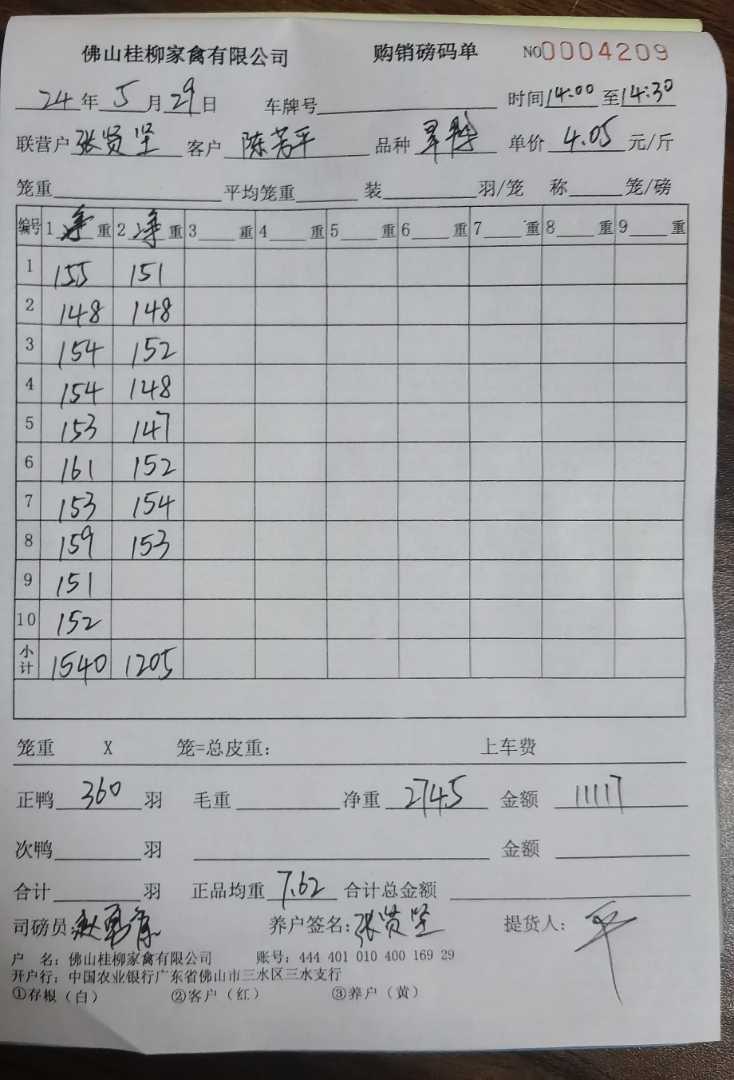 佛山桂柳家禽有限公司 购销磅码单 NO0004209
24年5月29日 车牌号 时间14:00至14:30
联营户张贤坚 客户陈芳平 品种 单价4.05元/斤
笼重 平均笼重 装 羽/笼 称 笼/磅
编号 1净重 2净重 3 重 4 重 5 重 6 重 7 重 8 重 9 重
1 155 151
2 148 148
3 154 152
4 154 148
5 153 147
6 161 152
7 153 154
8 159 153
9 151
10 152
小计 1540 1205
笼重 X 笼=总皮重: 上车费
正鸭360羽 毛重 净重2745 金额11117
次鸭 羽 金额
合计 羽 正品均重7.62 合计总金额
司磅员: 养户签名:张贤坚 提货人:平
户 名:佛山桂柳家禽有限公司 账号:444 401 010 400 169 29
开户行:中国农业银行广东省佛山市三水区三水支行
①存根(白) ②客户(红) ③养户(黄)